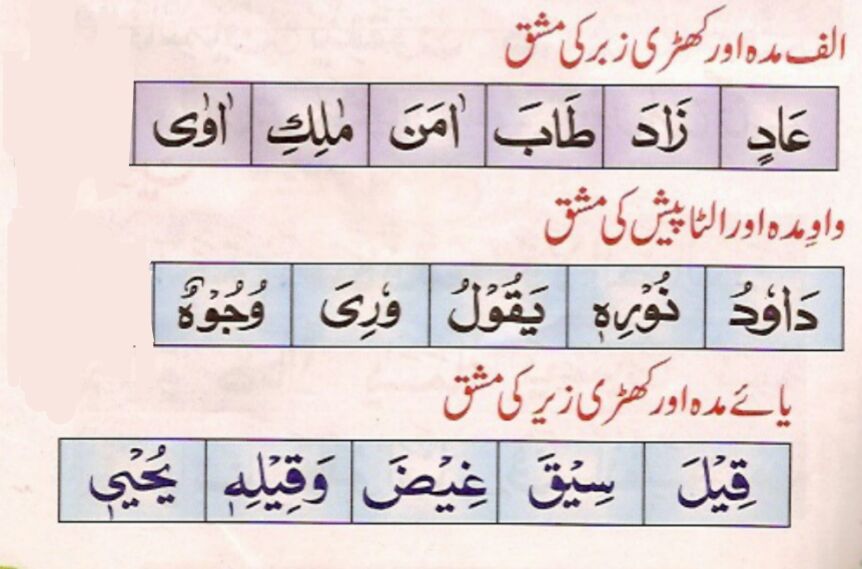 الف مدہ اور کھڑی زبر کی مشق
عَادٍ زَادَ طَابَ اٰمَنَ مٰلِكِ اٰوٰى
واوِ مدہ اور الٹا پیش کی مشق
دَاوٗدُ نُوْرِهٖ يَقُوْلُ وٗرِىَ وُجُوْهٌ
یائے مدہ اور کھڑی زیر کی مشق
قِيْلَ سِيْقَ غِيْضَ وَقِيْلِهٖ يُحْيٖ